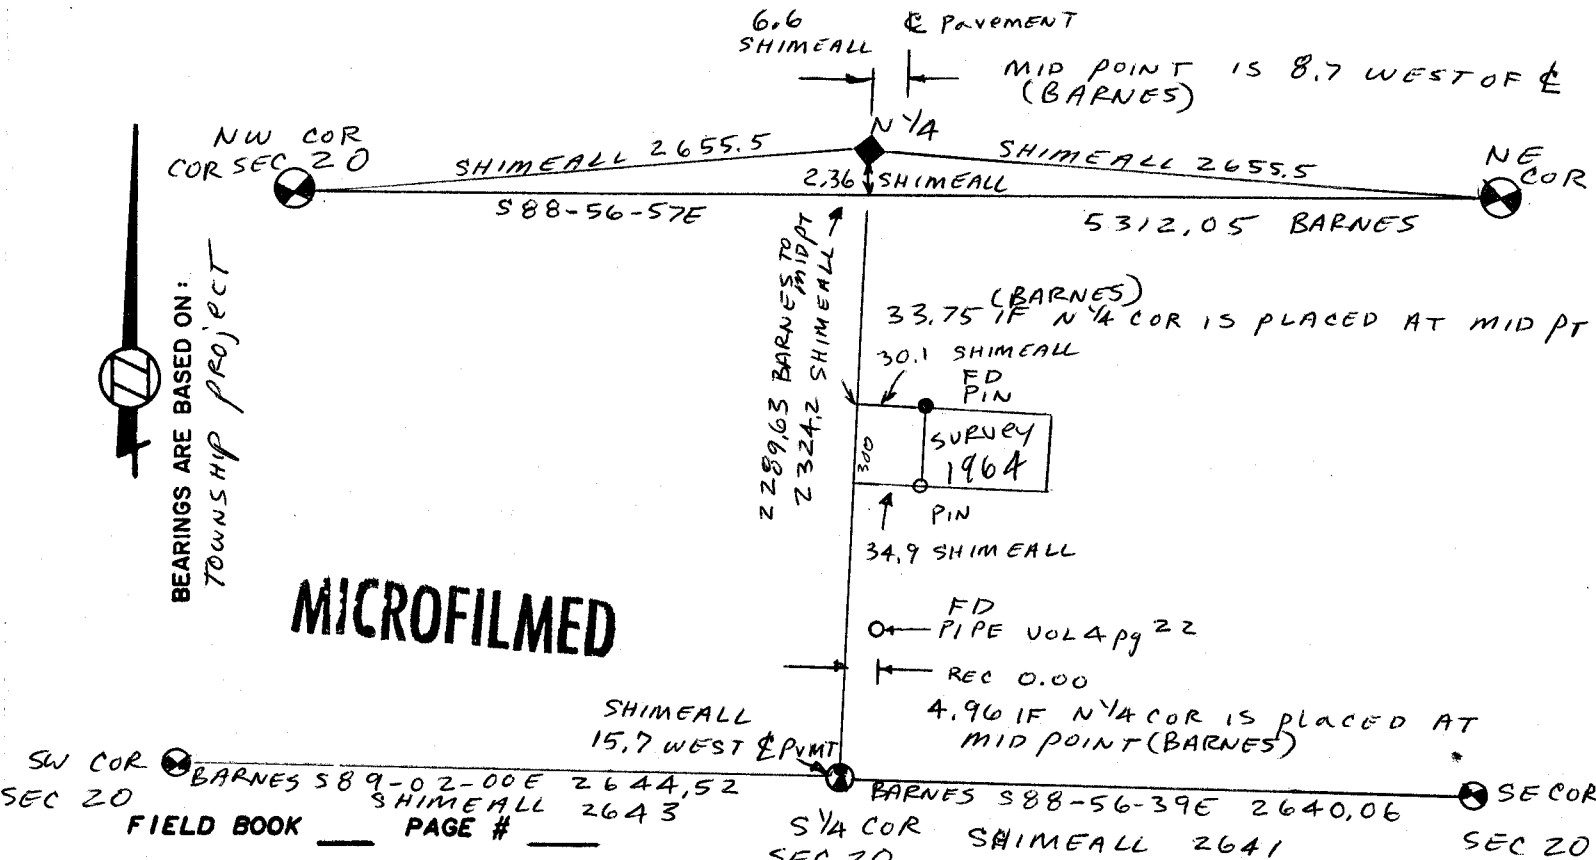 6.6
SHIMEALL
℄ PavemenT
MID POINT IS 8.7 WEST OF ℄
(BARNES)
N 1/4
NW COR
COR SEC 20
SHIMEALL 2655.5
SHIMEALL 2655.5
NE
COR
2.36 SHIMEALL
S88-56-57E
5312.05 BARNES
BEARINGS ARE BASED ON:
TOWNSHIP PROJECT
2289.63 BARNES TO
MID PT
2324.2 SHIMEALL
(BARNES)
33.75 IF N 1/4 COR IS PLACED AT MID PT
30.1 SHIMEALL
FD
PIN
SURVEY
1964
300
PIN
34.9 SHIMEALL
MICROFILMED
FD
PIPE VOL 4 pg 22
REC 0.00
4.96 IF N 1/4 COR IS PLACED AT
MID POINT (BARNES)
SHIMEALL
15.7 WEST ℄ PVMT
SW COR
SEC 20
BARNES S89-02-00E 2644.52
SHIMEALL 2643
BARNES S88-56-39E 2640.06
SHIMEALL 2641
SE COR
SEC 20
S 1/4 COR
SEC 20
FIELD BOOK ___ PAGE # ___